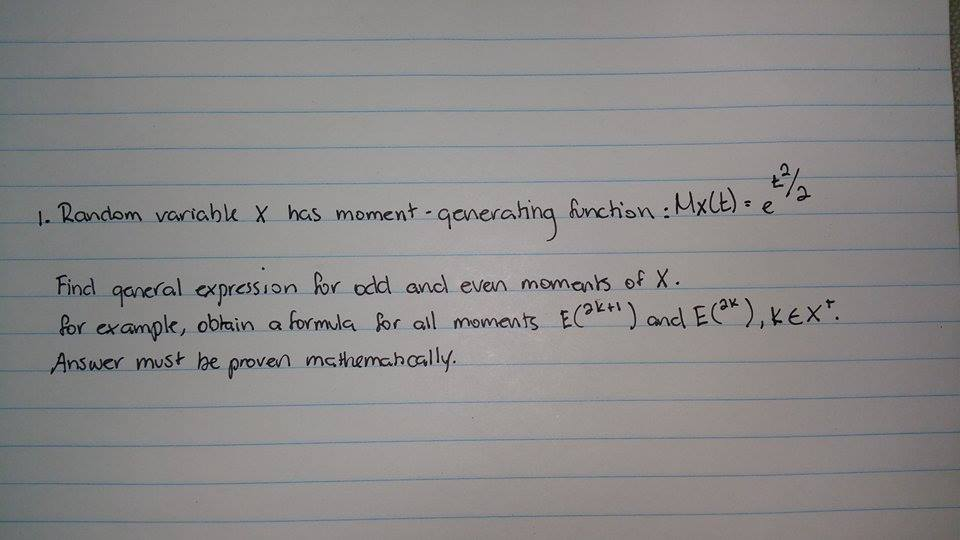 1. Random variable X has moment-generating function: Mx(t) = e^t²/2
Find general expression for odd and even moments of X.
for example, obtain a formula for all moments E(²ᵏ⁺¹) and E(²ᵏ), K ∈ X⁺.
Answer must be proven mathematically.